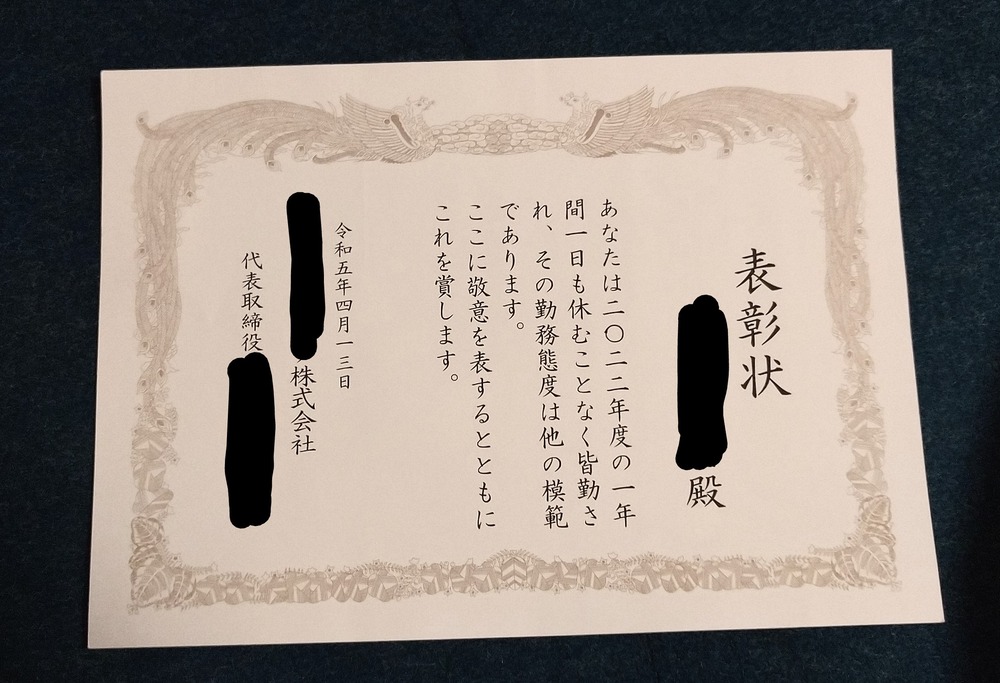 表彰状
殿
あなたは二〇二二年度の一年
間一日も休むことなく皆勤さ
れ、その勤務態度は他の模範
であります。
ここに敬意を表するとともに
これを賞します。
令和五年四月一三日
株式会社
代表取締役